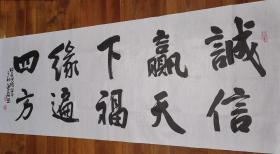 誠信
贏天
下福
緣遍
四方